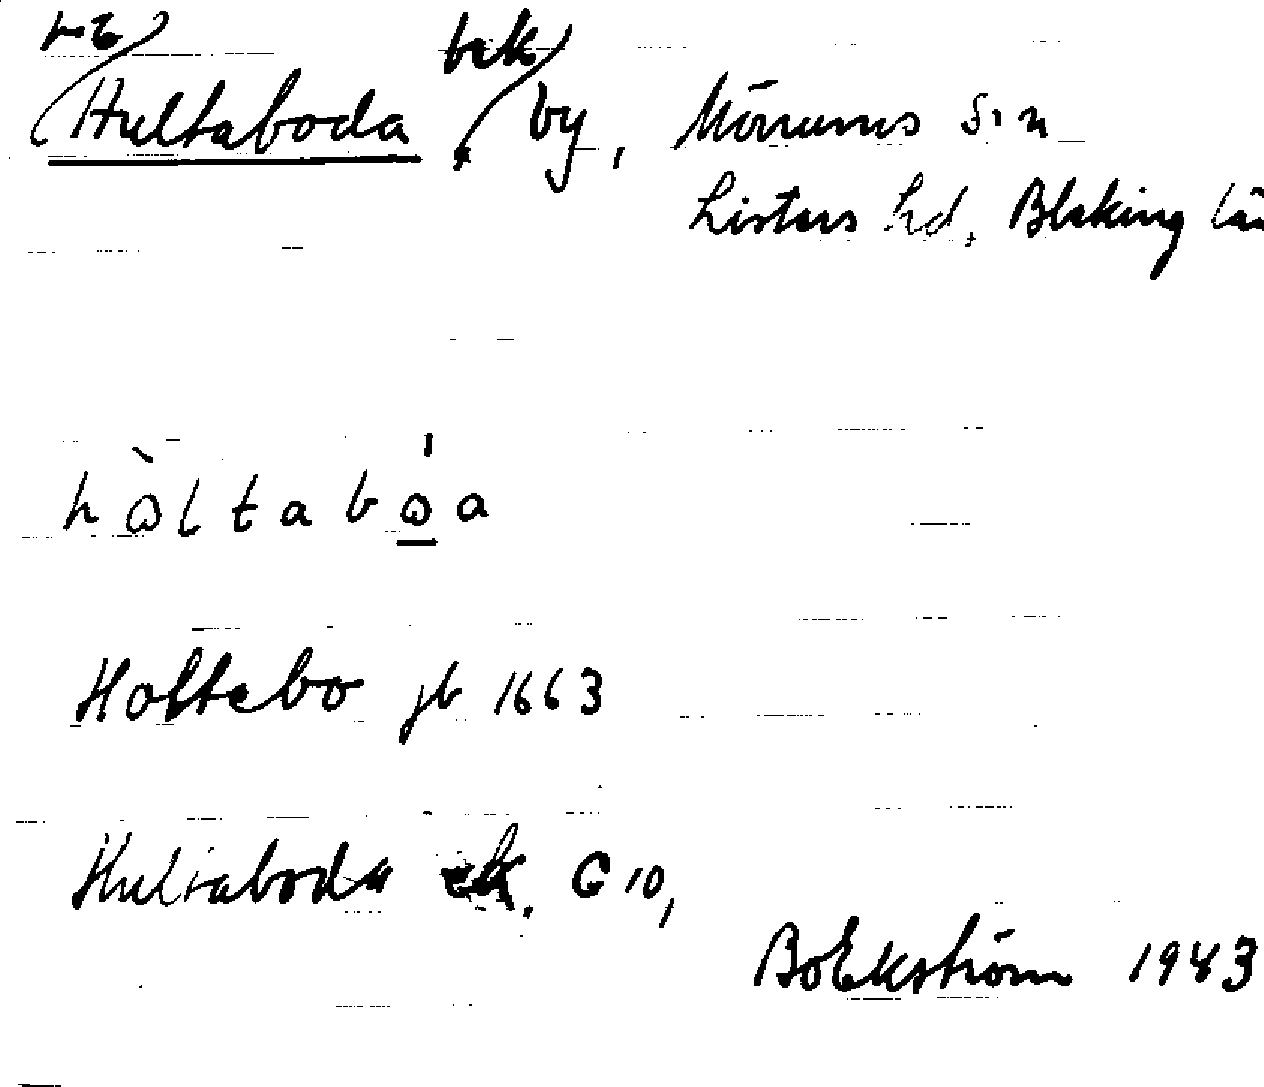 bek
Hultaboda by, Mörrums sn
Listers hd, Bleking län
hòltabo̲a
Holtebo jb 1663
Hultaboda ek. G 10,
Bo Ekström 1943